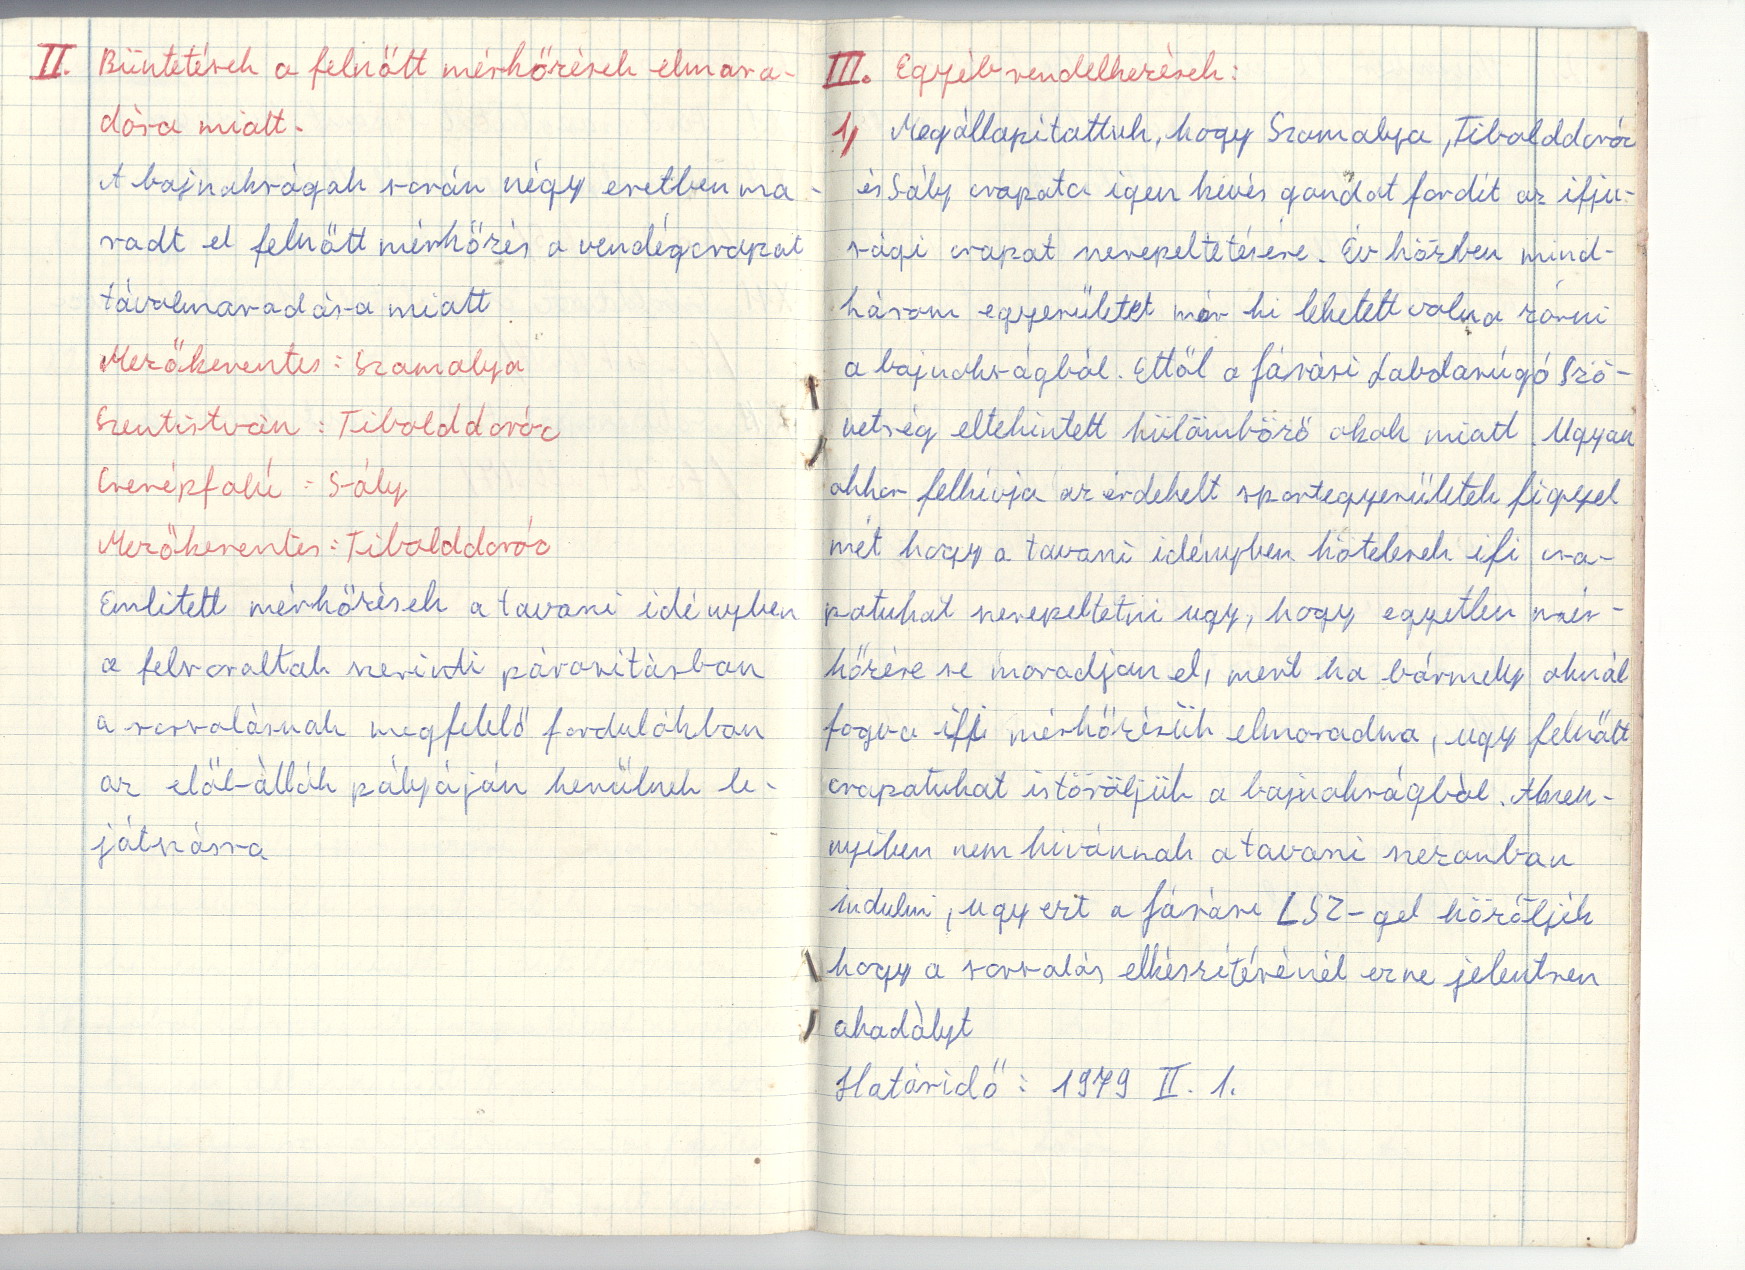 II. Büntetések a felnőtt mérkőzések elmara-
dása miatt.
A bajnokságok során négy esetben ma-
radt el felnőtt mérkőzés a vendégcsapat
távolmaradása miatt
Mezőkeresztes : Szomolya
Szentistván : Tibolddaróc
Cserépfalú : Sály
Mezőkeresztes : Tibolddaróc
Emlitett mérkőzések a tavaszi idényben
a felsoroltak szerinti párositásban
a sorsolásnak megfelelő fordulókban
az elől-állók pályáján kerülnek le-
játszásra
III. Egyéb rendelkezések:
1, Megállapítottuk, hogy Szomolya, Tibolddaróc
és Sály csapata igen kevés gondot fordít az ifju-
sági csapat szerepeltetésére. Év közben mind-
három egyesületet már ki lehetett volna zárni
a bajnokságból. Ettől a járási Labdarúgó Szö-
vetség eltekintett külömböző okok miatt. Ugyan
akkor felhívja az érdekelt sportegyesületek figyel
mét hogy a tavaszi idényben kötelesek ifi csa-
patukat szerepeltetni ugy, hogy egyetlen mér-
kőzése se maradjon el, mert ha bármely oknál
fogva ifi mérkőzésük elmaradna, ugy felnőtt
csapatukat istöröljük a bajnokságból. Amen-
nyiben nem kivánnak a tavaszi szezonban
indulni, ugy ezt a járási LSZ-gel közöljék
hogy a sorsolás elkészítésénél ez ne jelentsen
akadályt
Határidő : 1979 II. 1.